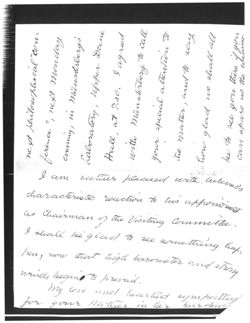 next philosophical "con-
ference", next Monday
evening, in Münsterberg's
Laboratory, Upper Dane
Hall, at 7.30. I agreed
with Münsterberg to call
your special attention to
the matter, and to say
how glad we shall all
be to see you there if you
can leave us the
I am rather pleased with
characteristic reaction to his appointment
as Chairman of the Visiting Committee.
I shall be glad to see something hap-
pen, now that high barometer and strong
winds begin to prevail.
My love and heartiest sympathy
for your Mother in her burdens